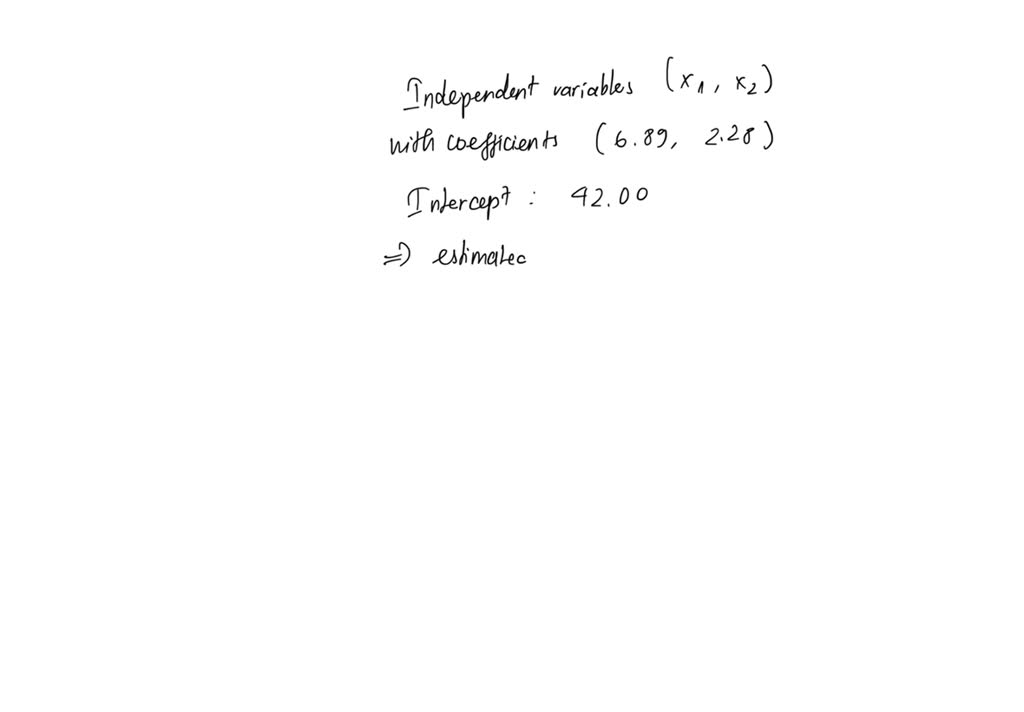 Independent variables (x1, x2)
with coefficients (6.89, 2.28)
Intercept : 42.00
=> estimatec